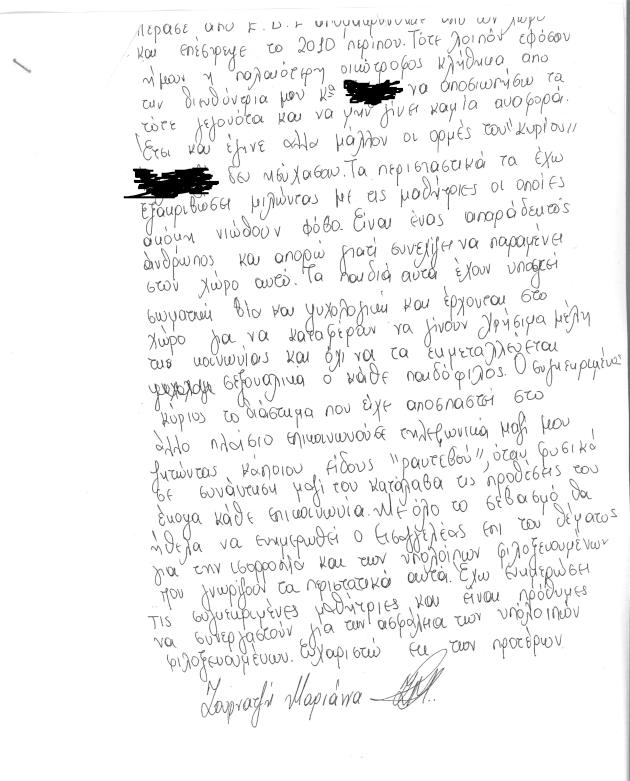 πέρασε από Ε.Δ.Ε απομακρύνθηκε από τον χώρο
και επέστρεψε το 2010 περίπου. Τότε λοιπόν εφόσον
ήμουν η παλαιότερη οικότροφος κλήθηκα απο
την διευθύντρια μου κα να αποσιωπήσω τα
τότε γεγονότα και να μην γίνει καμία αναφορά.
Έτσι και έγινε αλλα μάλλον οι ορμές του "Κυρίου"
δεν ησύχασαν. Τα περιστατικά τα έχω
εξακριβώσει μιλώντας με τις μαθήτριες οι οποίες
ακόμη νιώθουν φόβο. Είναι ένας απαράδεκτος
άνθρωπος και απορώ γιατί συνεχίζει να παραμένει
στον χώρο αυτό. Τα παιδιά αυτά έχουν υποστεί
σωματική βία και ψυχολογική και έρχονται στο
χώρο για να καταφέρουν να γίνουν χρήσιμα μέλη
της κοινωνίας και όχι να τα εκμεταλλεύεται
σεξουαλικα ο κάθε παιδόφιλος. Ο συγκεκριμένος
κύριος το διάστημα που είχε αποσπαστεί στο
άλλο πλαίσιο επικοινωνούσε τηλεφωνικά μαζί μου
ζητώντας κάποιου είδους "ραντεβού", όταν φυσικά
σε συνάντηση μαζί του κατάλαβα τις προθέσεις του
έκοψα κάθε επικοινωνία. Με όλο το σεβασμό θα
ήθελα να ενημερωθεί ο Εισαγγελέας επι του θέματος
για την ισορροπία και των υπολοίπων φιλοξενουμένων
που γνωρίζουν τα περιστατικά αυτά. Έχω ενημερώσει
τις συγκεκριμένες μαθήτριες και είναι πρόθυμες
να συνεργαστούν για την ασφάλεια των υπολοίπων
φιλοξενουμένων. Ευχαριστώ εκ των προτέρων
Μαριάννα